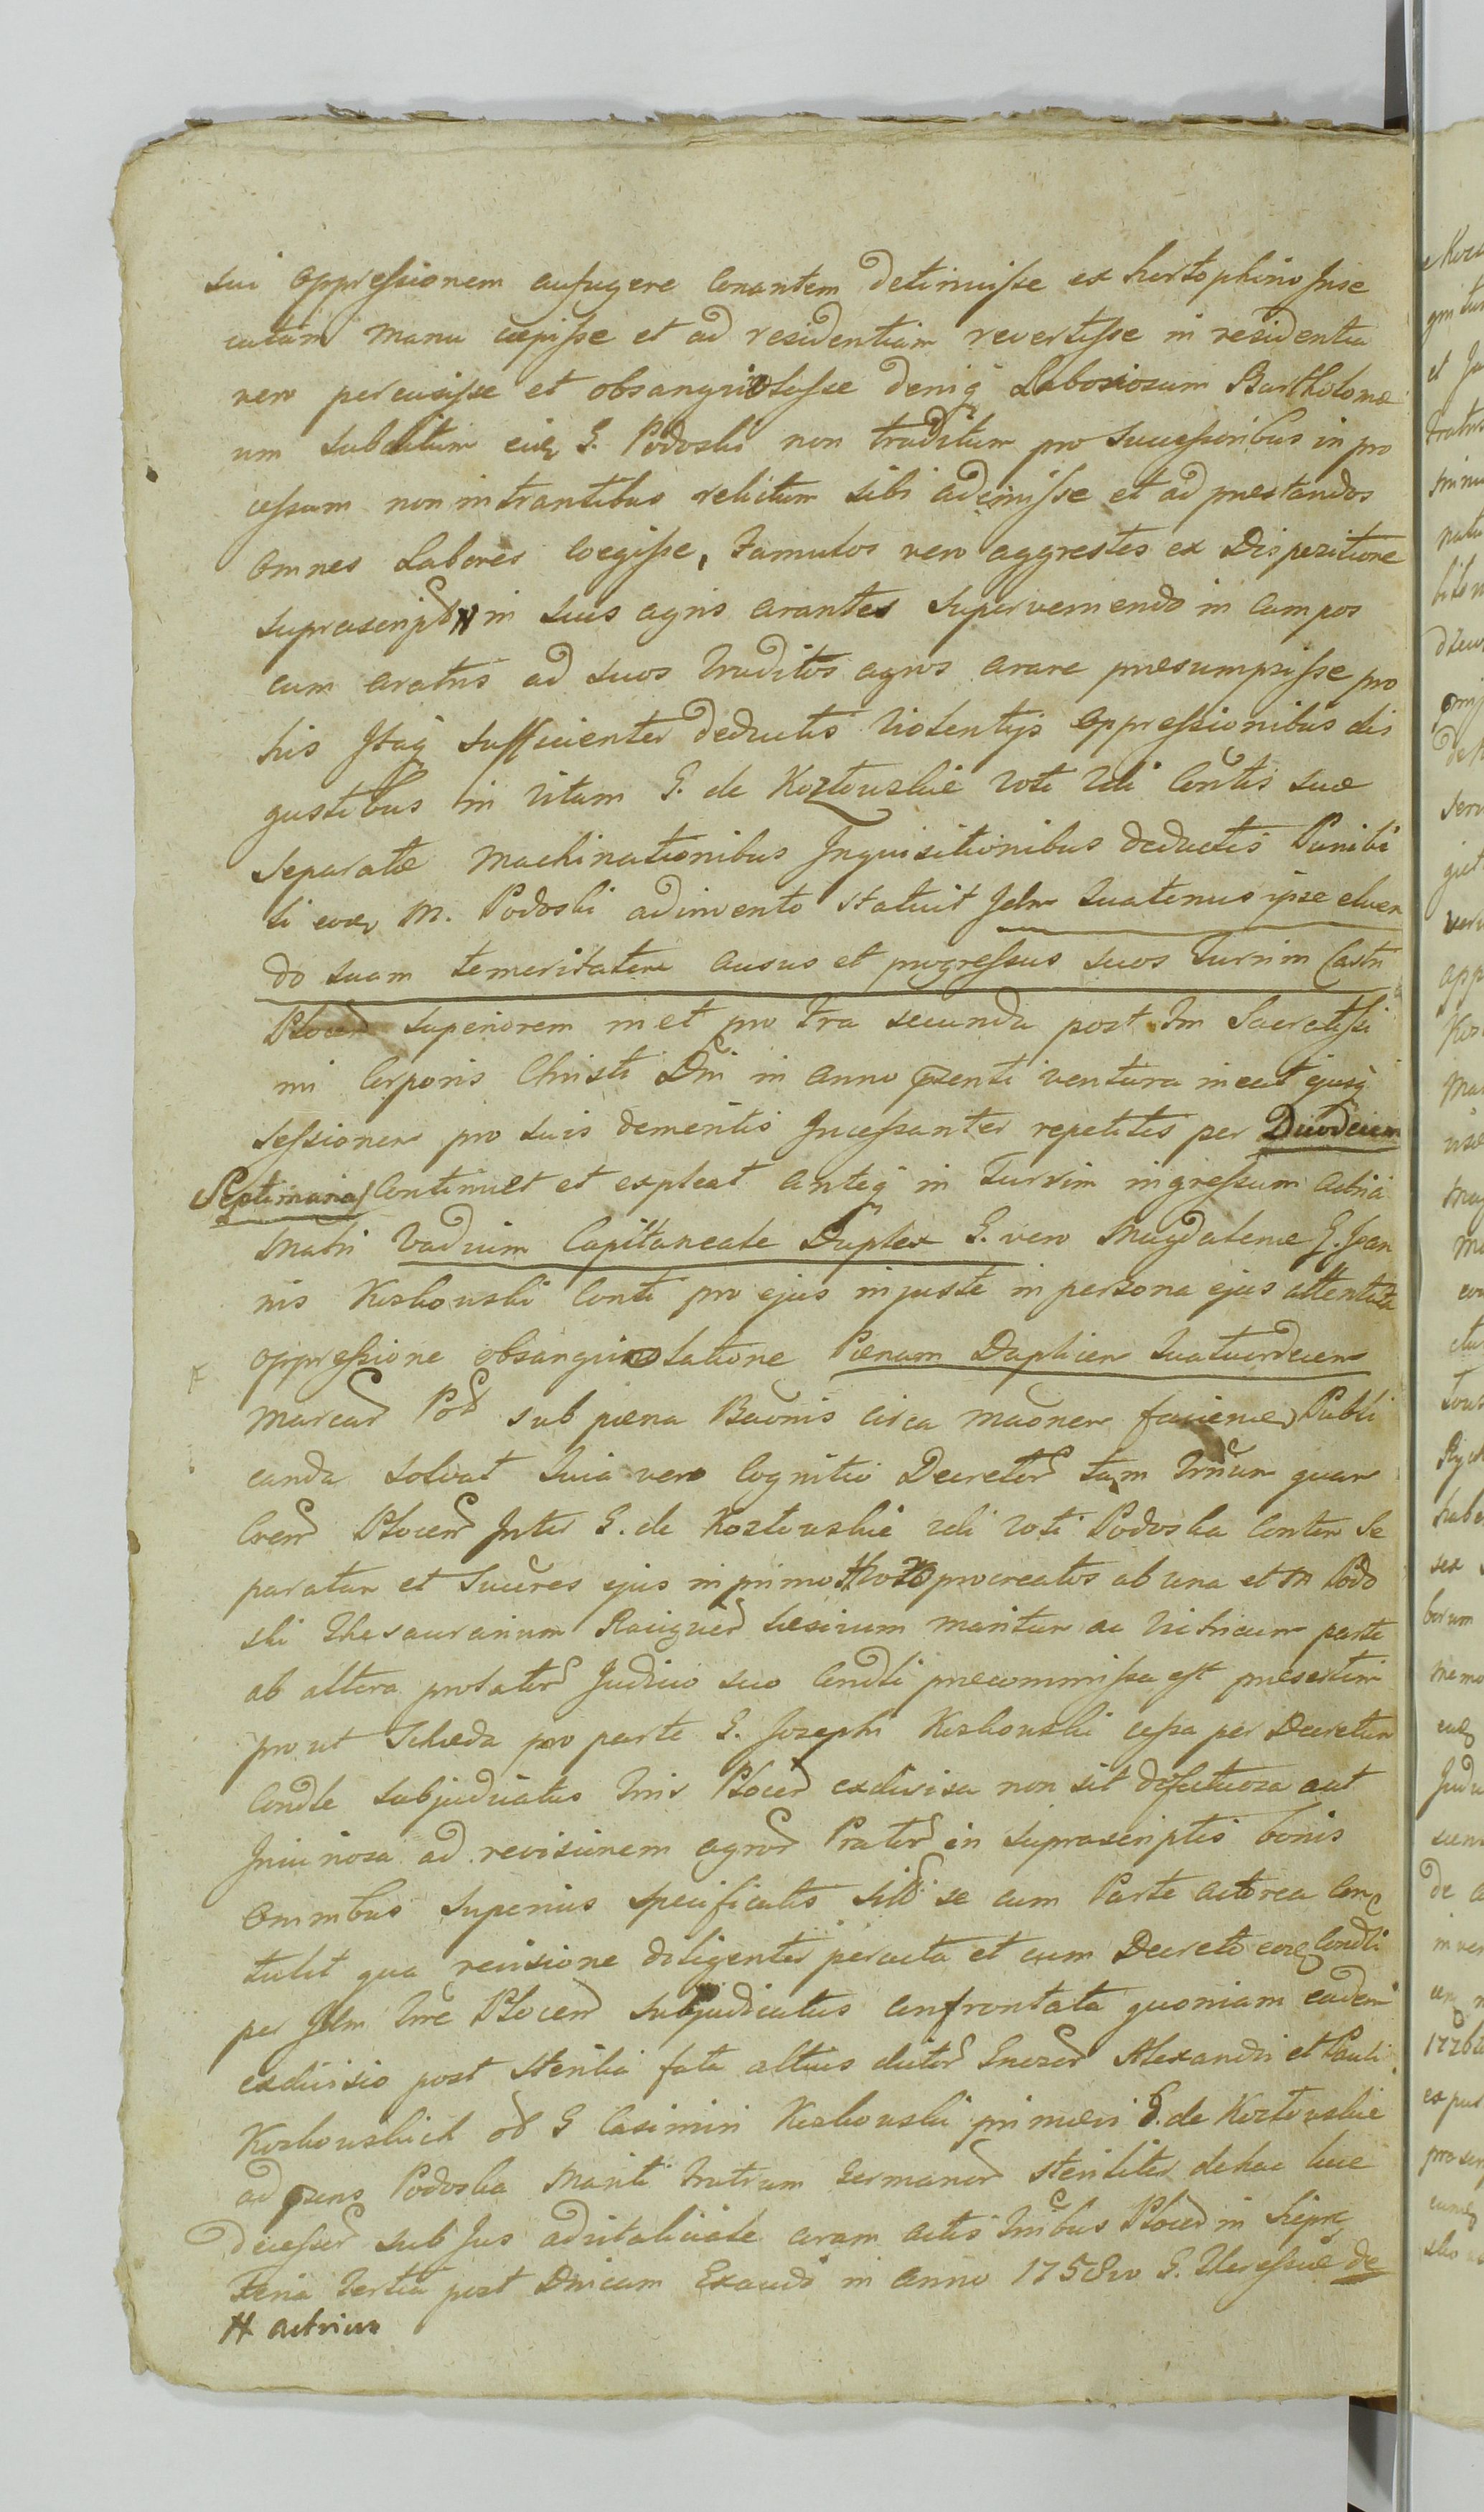 sui oppressionem aufugere conantem detinuisse ex hortophino Inse
cutam manu cepisse et ad residentiam revertisse in residentia
vero percussisse et obsangvinolasse deniq Laboriosum Bartholomæ
um subditum ejusd G. Podoski non traditum pro successoribus in pro
cessum non intrantibus relictum sibi ademisse et ad præstandos
omnes Labores coegisse, Famulos vero aggrestes ex Dispozitione
suprascript H in suis agris arantes superveniendo in campos
cum aratris ad suos traditos agros arare præsumpsisse pro
his Itaq sufficienter deductis violentijs oppressionibus dis
gustibus in vitam G. de Kozłowskie voti Udi Contis suæ
separatæ machinationibus Inquisitionibus deductis Punibi
li M. Podoski adinvento statuit quatenus ipse eluen
do suam temeritatem ausus et progressus suos Turrim Castri
Plocen superiorem met pro fra secunda post Sacratissi
mi Corporis Christi Dni in anno pzenti ventura ineat ejusq
sessionem pro suis demeritis Incessanter repetitis per Duodecim
Septimanas Continuet et expleat anteq in Turrim ingressum
Vadium Capitaneale Duplex G. vero Magdalenæ G. Joan
nis Kozkowski Conti pro ejus injuste in persona ejus attentata
oppressione obsangvinolatione Pænam Duplicem Quatuordecim
Marcar Pol sub pæna Bannis circa maonem faciend Publi
canda solvat Quia vero Cognitio Decretor tam quam
Cren Plocen Inter G. de Kozłowskie voti Podoska Contem Se
paratam et Succres ejus in primo thoro procreatos ab una et M Podo
ski Thesaurarium Raciązen Læsivum maritum ac vitricum parte
ab altera prolator Judicio suo Condli præcommissa est præsertim
prout Scheda pro parte G. Josephi Kozkowski cessa per Decretum
Condle subjudicatus Plocen exdivisa non sit defectuosa aut
Iniuriosa ad revisionem agror Prator in suprascriptis bonis
omnibus superius specificatis sitt se cum Parte actorea con
tulit qua revisione diligenter peracta et cum Decreto Condli
per Plocen subjudicatus confrontata quoniam eadem
exdivisio post sterilia fata altius dictor Gnosor Alexandri et Pauli
Kozkowskich G Casimiri Kozkowski primævi G. de Kozłowskie
ad pzens Podoska Mariti Fratrum Germanor steriliter de hac luce
decessor sub Jus advitalitiale coram actis Plocen in Sieprc
Feria tertia post Dnicam Exaudi in anno 1758vo G. Theressiæ de
H actricem